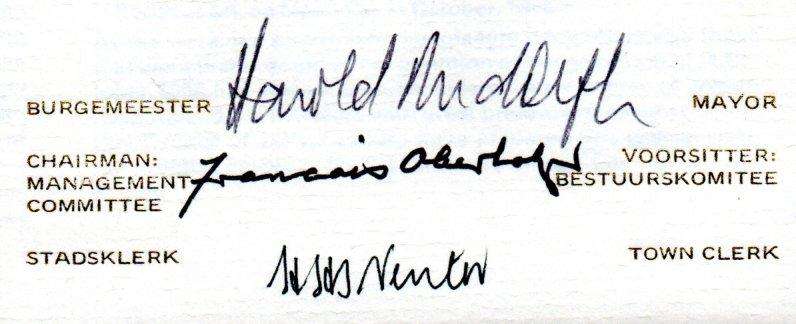 BURGEMEESTER Harold Rudolph MAYOR
CHAIRMAN: VOORSITTER:
MANAGEMENT Francois Oberholzer BESTUURSKOMITEE
COMMITTEE
STADSKLERK Venter TOWN CLERK